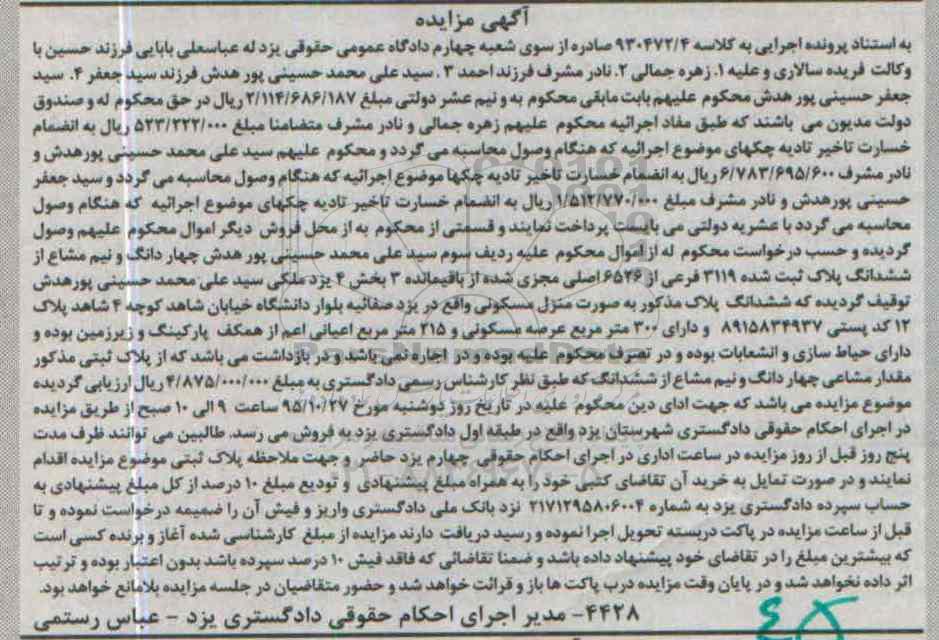 آگهی مزایده
به استناد پرونده اجرایی به کلاسه ۹۳۰۴۷۲/۴ صادره از سوی شعبه چهارم دادگاه عمومی حقوقی یزد له عباسعلی بابایی فرزند حسین با
وکالت فریده سالاری و علیه ۱. زهره جمالی ۲. نادر مشرف فرزند احمد ۳ . سید علی محمد حسینی پور هدش فرزند سید جعفر ۴. سید
جعفر حسینی پور هدش محکوم علیهم بابت مابقی محکوم به و نیم عشر دولتی مبلغ ۲/۱۱۴/۶۸۶/۱۸۷ ریال در حق محکوم له و صندوق
دولت مدیون می باشند که طبق مفاد اجرائیه محکوم علیهم زهره جمالی و نادر مشرف متضامنا مبلغ ۵۲۳/۲۲۲/۰۰۰ ریال به انضمام
خسارت تاخیر تادیه چکهای موضوع اجرائیه که هنگام وصول محاسبه می گردد و محکوم علیهم سید علی محمد حسینی پورهدش و
نادر مشرف ۶/۷۸۳/۶۹۵/۶۰۰ ریال به انضمام خسارت تاخیر تادیه چکها موضوع اجرائیه که هنگام وصول محاسبه می گردد و سید جعفر
حسینی پورهدش و نادر مشرف مبلغ ۱/۵۱۲/۷۷۰/۰۰۰ ریال به انضمام خسارت تاخیر تادیه چکهای موضوع اجرائیه که هنگام وصول
محاسبه می گردد با عشریه دولتی می بایست پرداخت نمایند و قسمتی از محکوم به از محل فروش دیگر اموال محکوم علیهم وصول
گردیده و حسب درخواست محکوم له از اموال محکوم علیه ردیف سوم سید علی محمد حسینی پور هدش چهار دانگ و نیم مشاع از
ششدانگ پلاک ثبت شده ۳۱۱۹ فرعی از ۶۵۲۶ اصلی مجزی شده از باقیمانده ۳ بخش ۴ یزد ملکی سید علی محمد حسینی پورهدش
توقیف گردیده که ششدانگ پلاک مذکور به صورت منزل مسکونی واقع در یزد صفائیه بلوار دانشگاه خیابان شاهد کوچه ۴ شاهد پلاک
۱۲ کد پستی ۸۹۱۵۸۳۴۹۳۷ و دارای ۳۰۰ متر مربع عرصه مسکونی و ۲۱۵ متر مربع اعیانی اعم از همکف پارکینگ و زیرزمین بوده و
دارای حیاط سازی و انشعابات بوده و در تصرف محکوم علیه بوده و در اجاره نمی باشد و در بازداشت می باشد که از پلاک ثبتی مذکور
مقدار مشاعی چهار دانگ و نیم مشاع از ششدانگ که طبق نظر کارشناس رسمی دادگستری به مبلغ ۴/۸۷۵/۰۰۰/۰۰۰ ریال ارزیابی گردیده
موضوع مزایده می باشد که جهت ادای دین محکوم علیه در تاریخ روز دوشنبه مورخ ۹۵/۱۰/۲۷ ساعت ۹ الی ۱۰ صبح از طریق مزایده
در اجرای احکام حقوقی دادگستری شهرستان یزد واقع در طبقه اول دادگستری یزد به فروش می رسد. طالبین می توانند ظرف مدت
پنج روز قبل از روز مزایده در ساعت اداری در اجرای احکام حقوقی چهارم یزد حاضر و جهت ملاحظه پلاک ثبتی موضوع مزایده اقدام
نمایند و در صورت تمایل به خرید آن تقاضای کتبی خود را به همراه مبلغ پیشنهادی و تودیع مبلغ ۱۰ درصد از کل مبلغ پیشنهادی به
حساب سپرده دادگستری یزد به شماره ۲۱۷۱۲۹۵۸۰۶۰۰۴ نزد بانک ملی دادگستری واریز و فیش آن را ضمیمه درخواست نموده و تا
قبل از ساعت مزایده در پاکت دربسته تحویل اجرا نموده و رسید دریافت دارند مزایده از مبلغ کارشناسی شده آغاز و برنده کسی است
که بیشترین مبلغ را در تقاضای خود پیشنهاد داده باشد و ضمنا تقاضائی که فاقد فیش ۱۰ درصد سپرده باشد بدون اعتبار بوده و ترتیب
اثر داده نخواهد شد و در پایان وقت مزایده درب پاکت ها باز و قرائت خواهد شد و حضور متقاضیان در جلسه مزایده بلامانع خواهد بود.
۴۴۲۸- مدیر اجرای احکام حقوقی دادگستری یزد - عباس رستمی